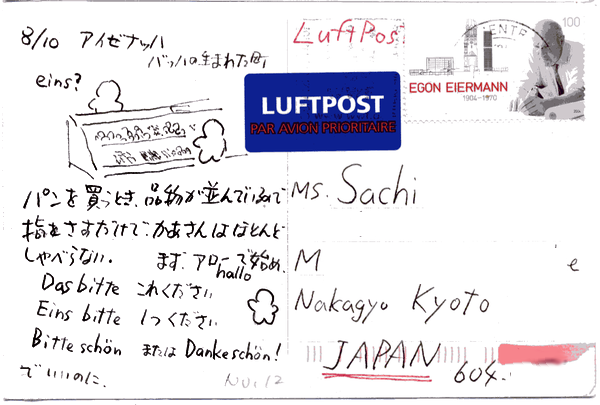 8/10 アイゼナッハ
バッハの生まれた町
eins?
パンを買うとき、品物が並んでいるので
指をさすだけで、かあさんはほとんど
しゃべらない。 まず、アローで始め、
hallo
Das bitte これください
Eins bitte 1つください
Bitte schön または Danke schön!
でいいのに。
NO.12
Luft Post
LUFTPOST
PAR AVION PRIORITAIRE
100
EGON EIERMANN
1904-1970
Ms. Sachi
M e
Nakagyo Kyoto
JAPAN 604-